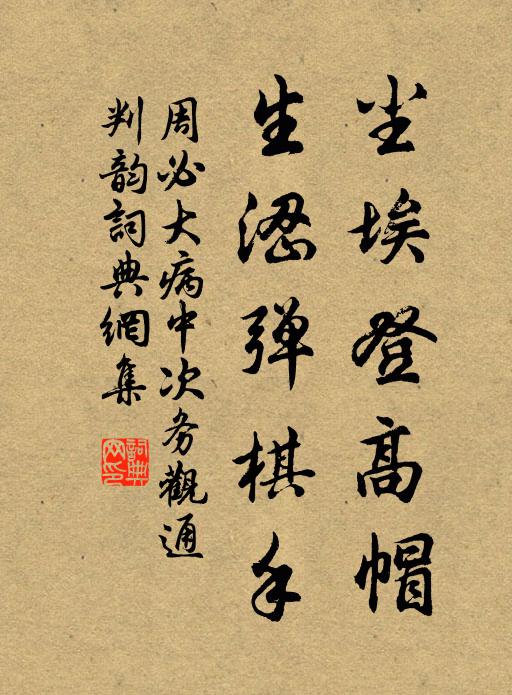 尘埃登高帽
生涩弹棋手
周必大病中次务觀通
判韵詞典網集
詞典
网印